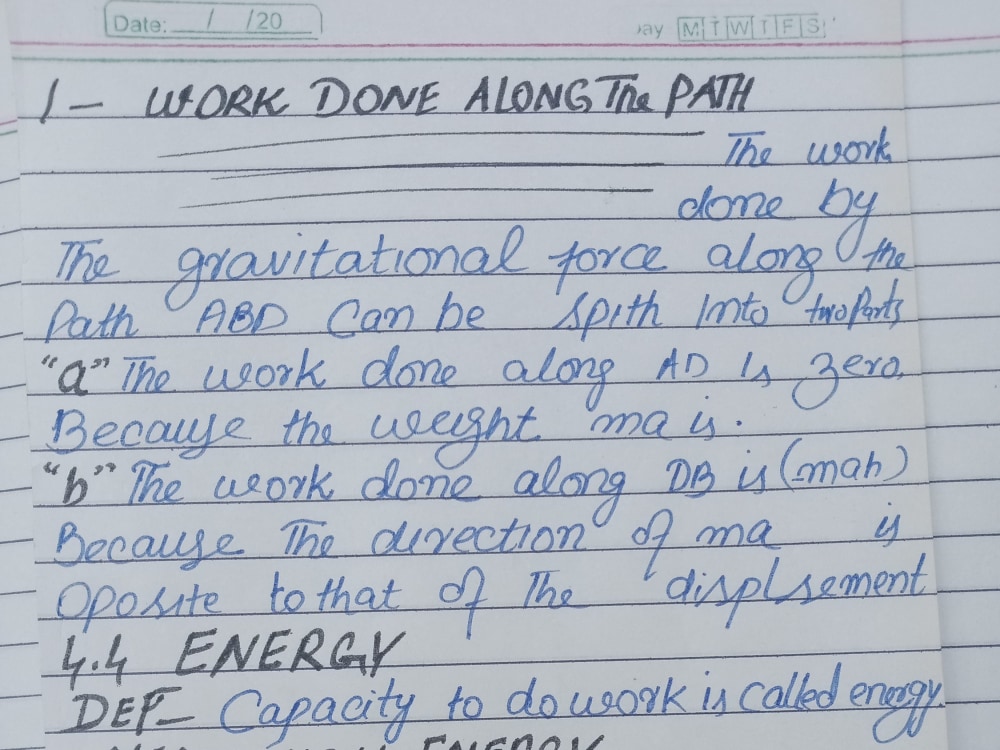 Date: / /20
ay M T W T F S
1- WORK DONE ALONG The PATH
The work
done by
The gravitational force along the
Path ABD Can be Spith Into two Parts
"a" The work done along AD Is zero,
Because the weight ma is.
"b" The work done along DB is (-mah)
Because The direction of ma is
Oposite to that of The displsement
4.4 ENERGY
DEF- Capacity to do work is called energy.
ENERGY